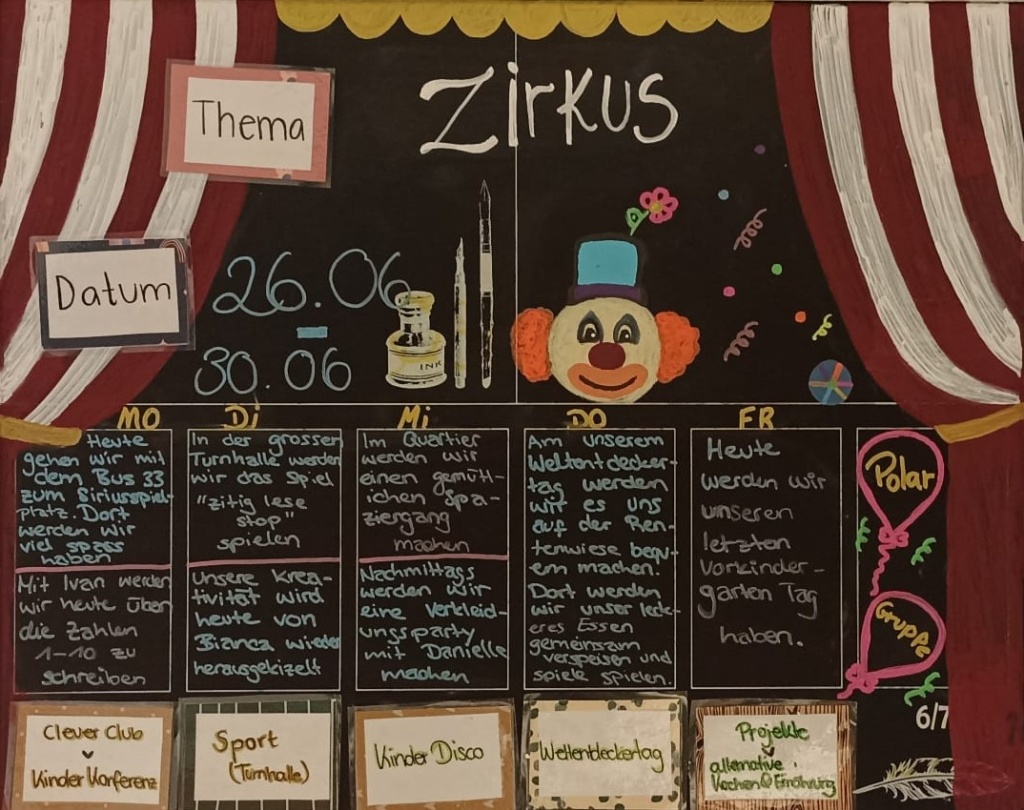 Zirkus
Thema
Datum
26.06
-
30.06
INK
MO
Heute
gehen wir mit
dem Bus 33
zum Siriusspiel-
platz. Dort
werden wir
viel spass
haben
Mit Ivan werden
wir heute üben
die Zahlen
1-10 zu
schreiben
Di
In der grossen
Turnhalle werden
wir das Spiel
"zitig lese
stop"
spielen
unsere Krea-
tivität wird
heute von
Bianca wieder
herausgekizelt
Mi
Im Quartier
werden wir
einen gemütl-
ichen Spa-
ziergang
machen
Nachmittags
werden wir
eine Verkleid-
ungsparty
mit Danielle
machen
DO
Am unserem
Weltentdecker-
tag werden
wir es uns
auf der Ren-
tenwiese bequ-
em machen.
Dort werden
wir unser leck-
eres Essen
gemeinsam
verspeisen und
spiele spielen.
FR
Heute
werden wir
unseren
letzten
Vorkinder-
garten Tag
haben.
Polar
Gruppe
6/7
Clever Club
Kinder Konferenz
Sport
(Turnhalle)
Kinder Disco
Weltentdeckertag
Projekte
alternative
Kochen & Ernährung